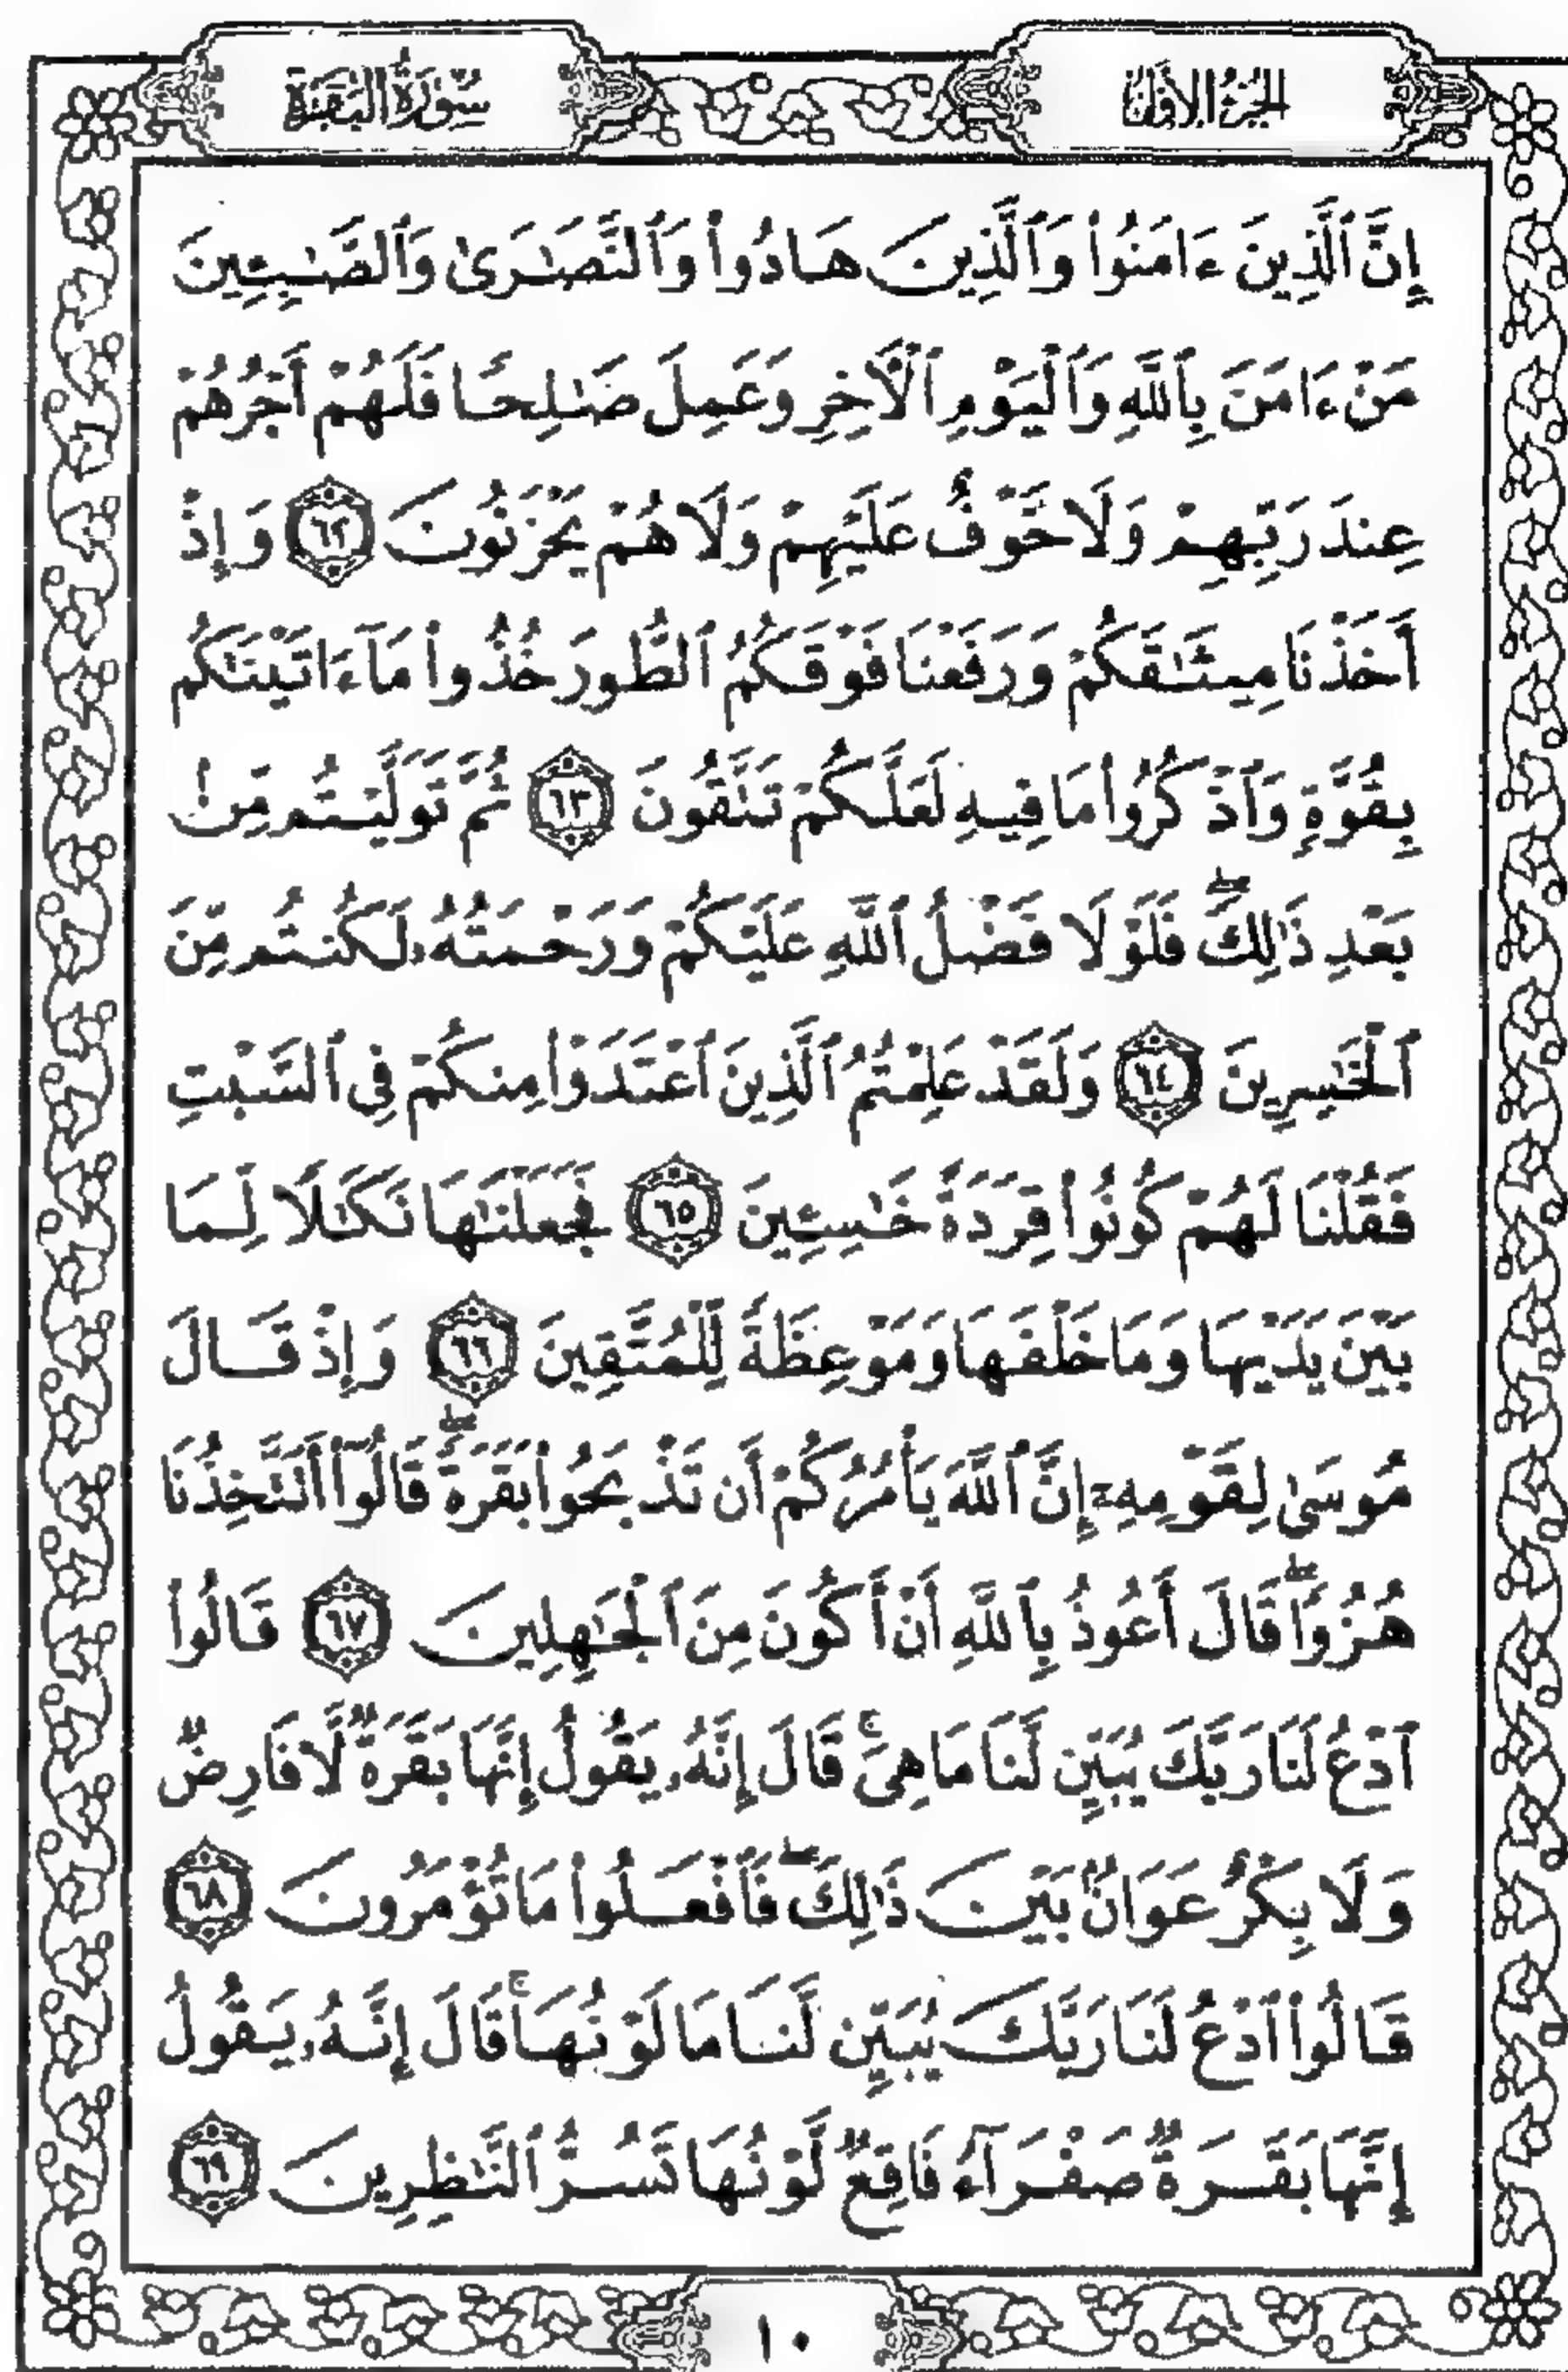 الجزء الأول
سورة البقرة
إِنَّ ٱلَّذِينَ ءَامَنُوا۟ وَٱلَّذِينَ هَادُوا۟ وَٱلنَّصَٰرَىٰ وَٱلصَّٰبِـِٔينَ
مَنْ ءَامَنَ بِٱللَّهِ وَٱلْيَوْمِ ٱلْـَٔاخِرِ وَعَمِلَ صَٰلِحًا فَلَهُمْ أَجْرُهُمْ
عِندَ رَبِّهِمْ وَلَا خَوْفٌ عَلَيْهِمْ وَلَا هُمْ يَحْزَنُونَ ٦٢ وَإِذْ
أَخَذْنَا مِيثَٰقَكُمْ وَرَفَعْنَا فَوْقَكُمُ ٱلطُّورَ خُذُوا۟ مَآ ءَاتَيْنَٰكُم
بِقُوَّةٍ وَٱذْكُرُوا۟ مَا فِيهِ لَعَلَّكُمْ تَتَّقُونَ ٦٣ ثُمَّ تَوَلَّيْتُم مِّنۢ
بَعْدِ ذَٰلِكَ ۖ فَلَوْلَا فَضْلُ ٱللَّهِ عَلَيْكُمْ وَرَحْمَتُهُۥ لَكُنتُم مِّنَ
ٱلْخَٰسِرِينَ ٦٤ وَلَقَدْ عَلِمْتُمُ ٱلَّذِينَ ٱعْتَدَوْا۟ مِنكُمْ فِى ٱلسَّبْتِ
فَقُلْنَا لَهُمْ كُونُوا۟ قِرَدَةً خَٰسِـِٔينَ ٦٥ فَجَعَلْنَٰهَا نَكَٰلًا لِّمَا
بَيْنَ يَدَيْهَا وَمَا خَلْفَهَا وَمَوْعِظَةً لِّلْمُتَّقِينَ ٦٦ وَإِذْ قَالَ
مُوسَىٰ لِقَوْمِهِۦٓ إِنَّ ٱللَّهَ يَأْمُرُكُمْ أَن تَذْبَحُوا۟ بَقَرَةً ۖ قَالُوٓا۟ أَتَتَّخِذُنَا
هُزُوًا ۖ قَالَ أَعُوذُ بِٱللَّهِ أَنْ أَكُونَ مِنَ ٱلْجَٰهِلِينَ ٦٧ قَالُوا۟
ٱدْعُ لَنَا رَبَّكَ يُبَيِّن لَّنَا مَا هِىَ ۚ قَالَ إِنَّهُۥ يَقُولُ إِنَّهَا بَقَرَةٌ لَّا فَارِضٌ
وَلَا بِكْرٌ عَوَانٌۢ بَيْنَ ذَٰلِكَ ۖ فَٱفْعَلُوا۟ مَا تُؤْمَرُونَ ٦٨
قَالُوا۟ ٱدْعُ لَنَا رَبَّكَ يُبَيِّن لَّنَا مَا لَوْنُهَا ۚ قَالَ إِنَّهُۥ يَقُولُ
إِنَّهَا بَقَرَةٌ صَفْرَآءُ فَاقِعٌ لَّوْنُهَا تَسُرُّ ٱلنَّٰظِرِينَ ٦٩
١٠